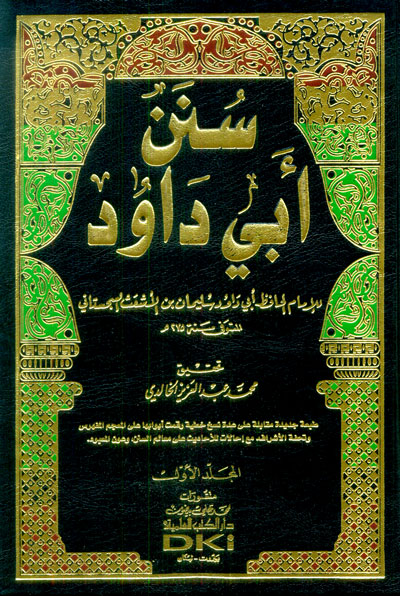 سُنَنُ
أَبِي دَاوُد
للإمام الحافظ أبي داود سليمان بن الأشعث السجستاني
المتوفى سنة ٢٧٥ هـ
تحقيق
محمد عبد العزيز الخالدي
طبعة جديدة مقابلة على عدة نسخ خطية رقمت أبوابها على المعجم المفهرس
وتحفة الأشراف، مع إحالات للأحاديث على معالم السنن، وعون المعبود.
المجلد الأول
منشورات
محمد علي بيضون
دار الكتب العلمية
DKi
بيروت - لبنان